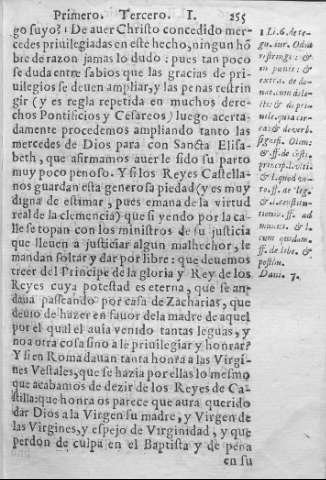 Primero. Tercero. I. 255
go suyo?: De auer Christo concedido mer-
cedes priuilegiadas en este hecho, ningun hõ
bre de razon jamas lo dudo: pues tan poco
se duda entre sabios que las gracias de pri-
uilegios se deuen ampliar, y las penas restrin
gir (y es regla repetida en muchos dere-
chos Pontificios y Cesareos) luego acerta-
damente procedemos ampliando tanto las
mercedes de Dios para con Sancta Elisa-
beth, que afirmamos auer le sido su parto
muy poco penoso. Y si los Reyes Castella-
nos guardan esta generosa piedad (y es muy
digna de estimar, pues emana de la virtud
real de la clemencia) que si yendo por la ca-
lle se topan con los ministros de su justicia
que lleuen a justiciar algun malhechor, le
mandan soltar y dar por libre: que deuemos
creer del Principe de la gloria y Rey de los
Reyes cuya potestad es eterna, que se an-
daua passeando por casa de Zacharias, que
deuio de hazer en fauor dela madre de aquel
por el qual el auia venido tantas leguas, y
no a otra cosa sino a le priuilegiar y honrar?
Y si en Roma dauan tanta honra a las Virgi
nes Vestales, que se hazia por ellas lo mesmo
que acabamos de dezir de los Reyes de Ca-
stilla: que honra os parece que aura querido
dar Dios a la Virgen su madre, y Virgen de
las Virgines, y espejo de Virginidad, y que
perdon de culpa en el Baptista y de pena
en su
1 Li. 6. de re-
gu. iur. Odia
restringi: &
in pœnis: &
extra. de do-
Dani. 7.